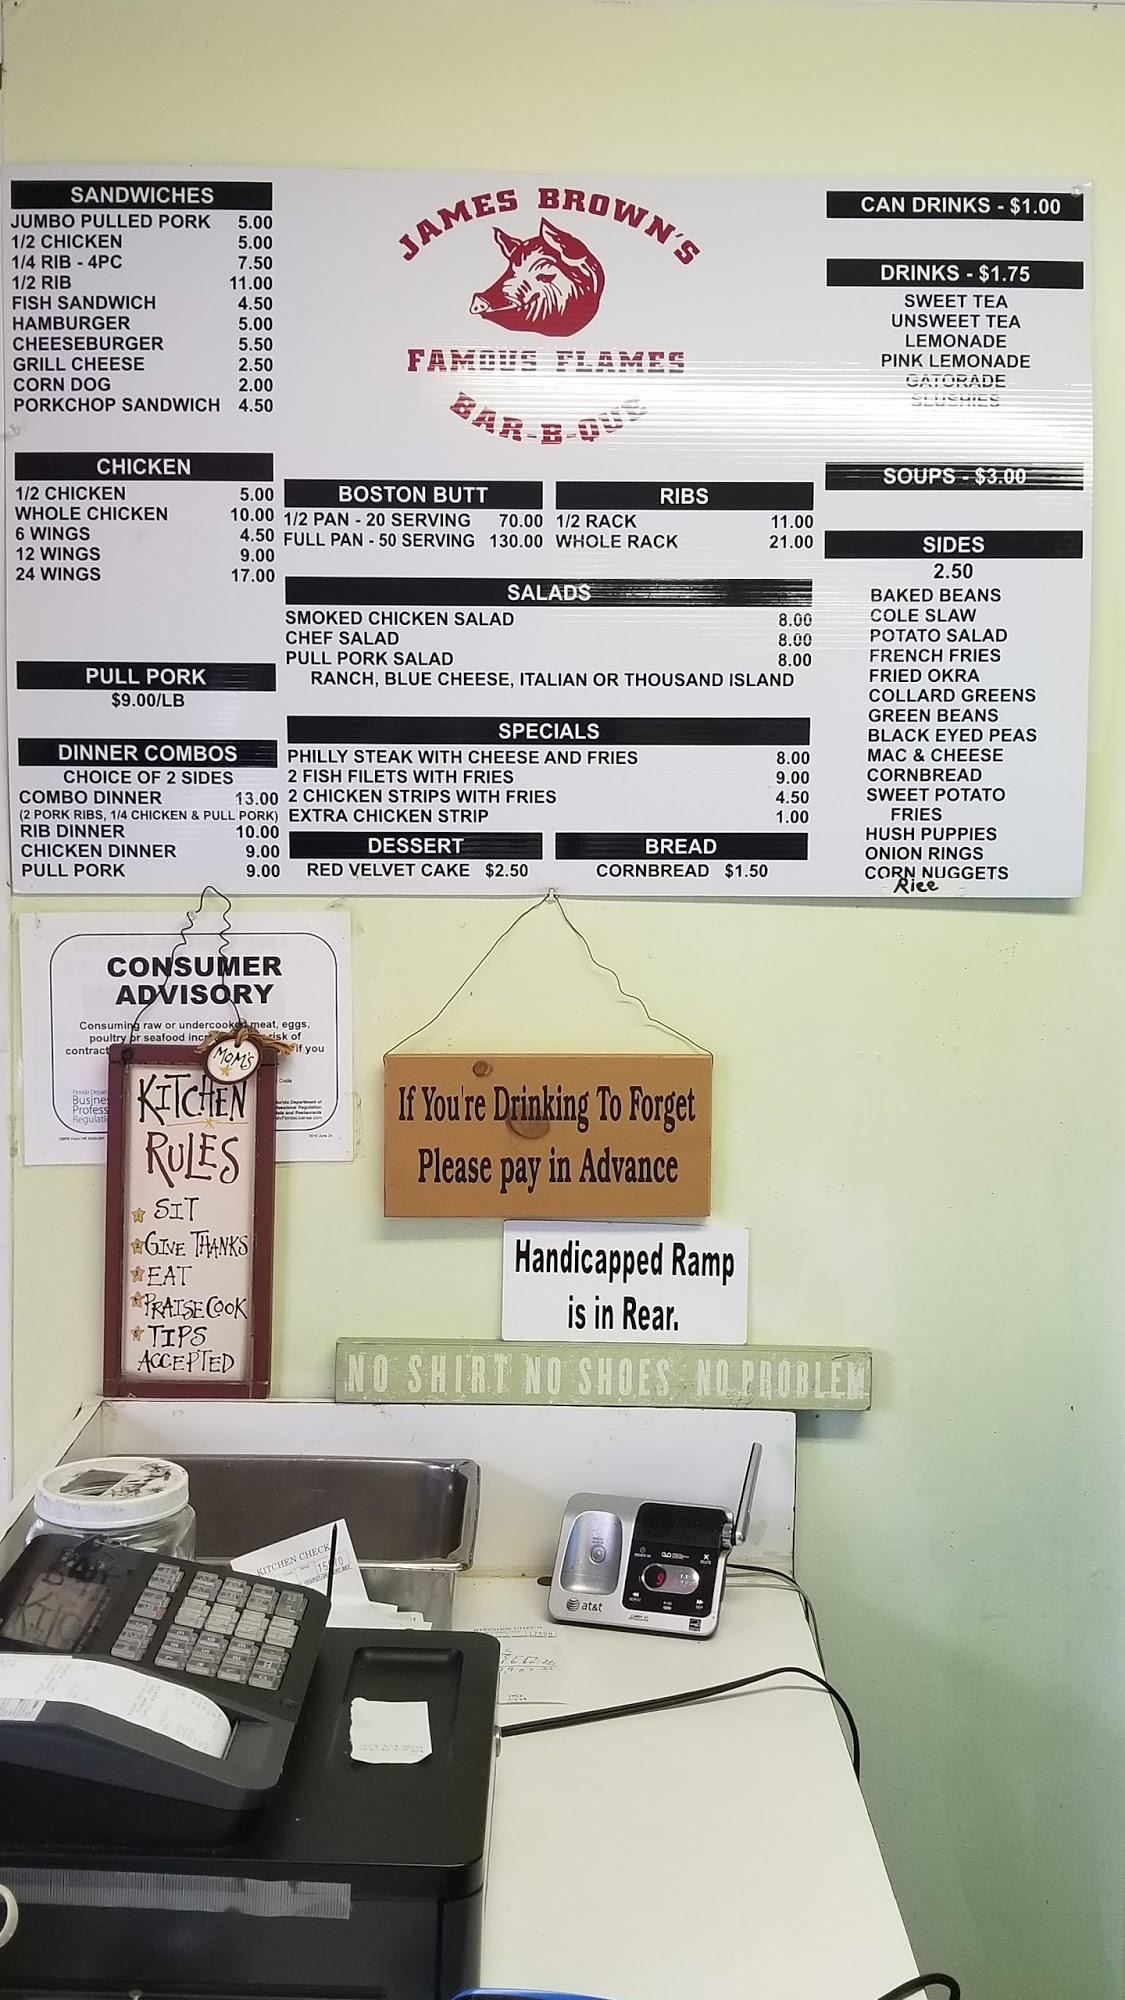 SANDWICHES
JUMBO PULLED PORK 5.00
1/2 CHICKEN 5.00
1/4 RIB - 4PC 7.50
1/2 RIB 11.00
FISH SANDWICH 4.50
HAMBURGER 5.00
CHEESEBURGER 5.50
GRILL CHEESE 2.50
CORN DOG 2.00
PORKCHOP SANDWICH 4.50
CHICKEN
1/2 CHICKEN 5.00
WHOLE CHICKEN 10.00
6 WINGS 4.50
12 WINGS 9.00
24 WINGS 17.00
PULL PORK
$9.00/LB
DINNER COMBOS
CHOICE OF 2 SIDES
COMBO DINNER 13.00
(2 PORK RIBS, 1/4 CHICKEN & PULL PORK)
RIB DINNER 10.00
CHICKEN DINNER 9.00
PULL PORK 9.00
JAMES BROWN'S
FAMOUS FLAMES
BAR-B-QUE
BOSTON BUTT
1/2 PAN - 20 SERVING 70.00
FULL PAN - 50 SERVING 130.00
RIBS
1/2 RACK 11.00
WHOLE RACK 21.00
SALADS
SMOKED CHICKEN SALAD 8.00
CHEF SALAD 8.00
PULL PORK SALAD 8.00
RANCH, BLUE CHEESE, ITALIAN OR THOUSAND ISLAND
SPECIALS
PHILLY STEAK WITH CHEESE AND FRIES 8.00
2 FISH FILETS WITH FRIES 9.00
2 CHICKEN STRIPS WITH FRIES 4.50
EXTRA CHICKEN STRIP 1.00
DESSERT
RED VELVET CAKE $2.50
BREAD
CORNBREAD $1.50
CAN DRINKS - $1.00
DRINKS - $1.75
SWEET TEA
UNSWEET TEA
LEMONADE
PINK LEMONADE
GATORADE
SLUSHIES
SOUPS - $3.00
SIDES
2.50
BAKED BEANS
COLE SLAW
POTATO SALAD
FRENCH FRIES
FRIED OKRA
COLLARD GREENS
GREEN BEANS
BLACK EYED PEAS
MAC & CHEESE
CORNBREAD
SWEET POTATO
FRIES
HUSH PUPPIES
ONION RINGS
CORN NUGGETS
Rice
CONSUMER
ADVISORY
Consuming raw or undercooked meat, eggs,
poultry or seafood risk of
if you
MOM'S
KITCHEN
RULES
SIT
GIVE THANKS
EAT
PRAISE COOK
TIPS
ACCEPTED
If You're Drinking To Forget
Please pay in Advance
Handicapped Ramp
is in Rear.
NO SHIRT NO SHOES NO PROBLEM
KITCHEN CHECK
at&t